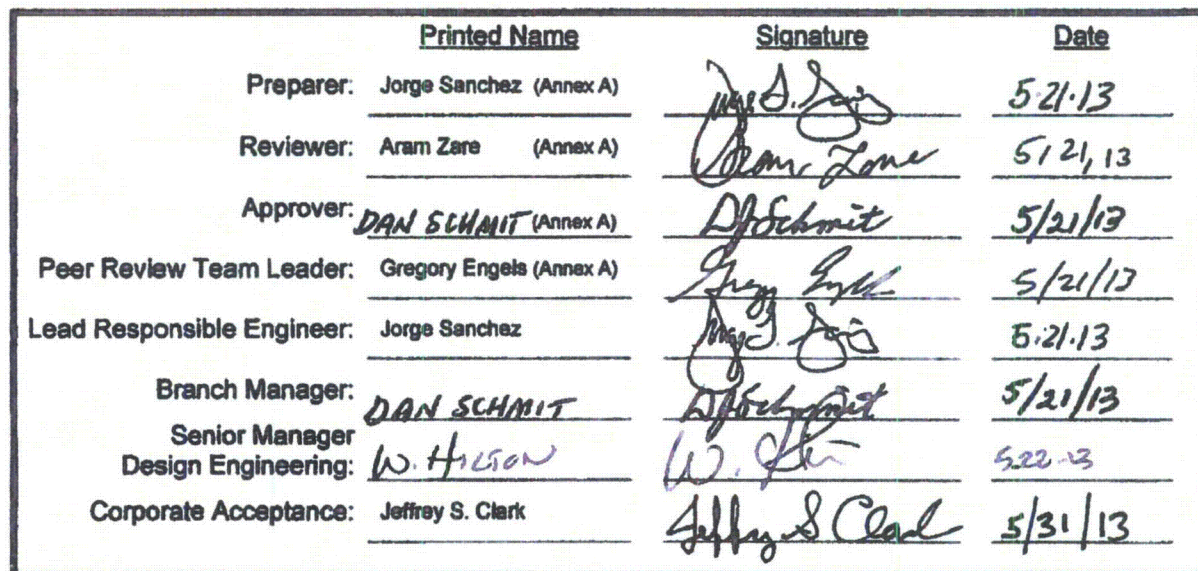 Printed Name Signature Date
Preparer: Jorge Sanchez (Annex A) 5·21·13
Reviewer: Aram Zare (Annex A) 5/21/13
Approver: DAN SCHMIT (Annex A) DJSchmit 5/21/13
Peer Review Team Leader: Gregory Engels (Annex A) 5/21/13
Lead Responsible Engineer: Jorge Sanchez 5·21·13
Branch Manager: DAN SCHMIT DJSchmit 5/21/13
Senior Manager
Design Engineering: W. HILTON W. 5-22-13
Corporate Acceptance: Jeffrey S. Clark Jeffrey S Clark 5/31/13